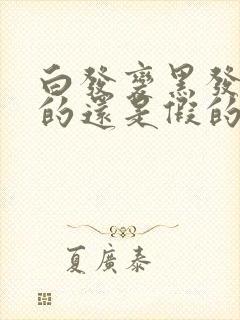 白發變黑發
的還是假的
夏廣泰